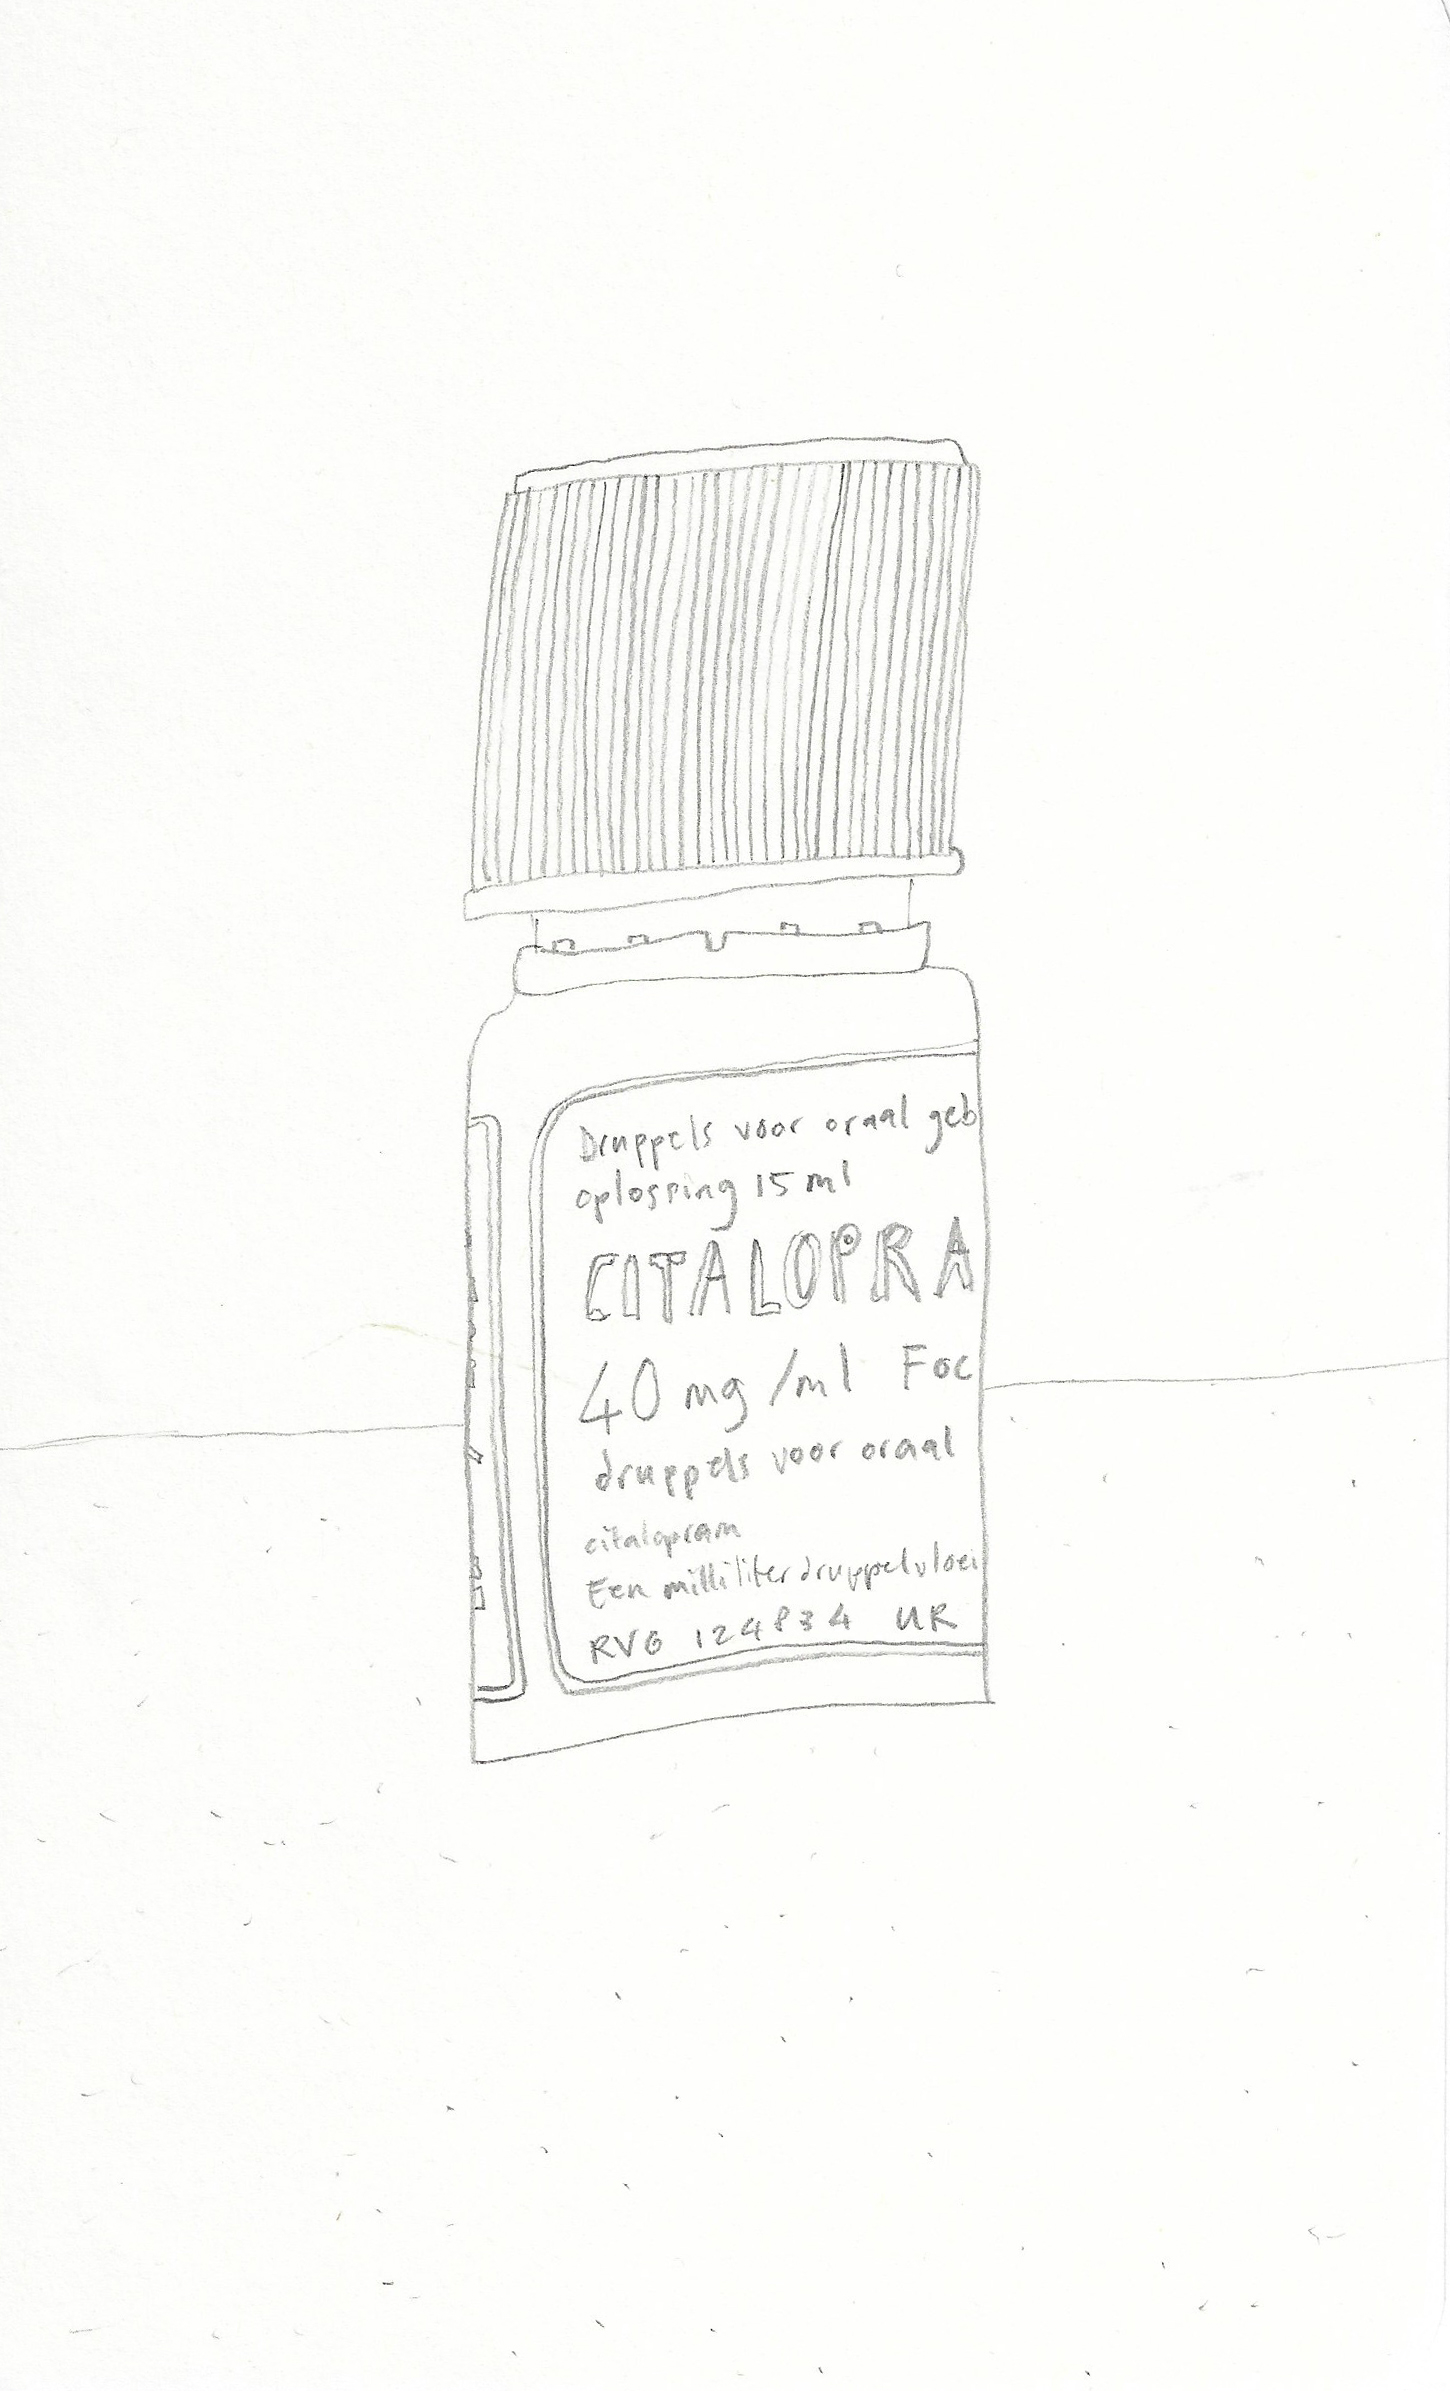 Druppels voor oraal geb
oplossing 15 ml
CITALOPRA
40 mg/ml Foc
druppels voor oraal
citalopram
Een milliliter druppelvloei
RVG 124834 UR